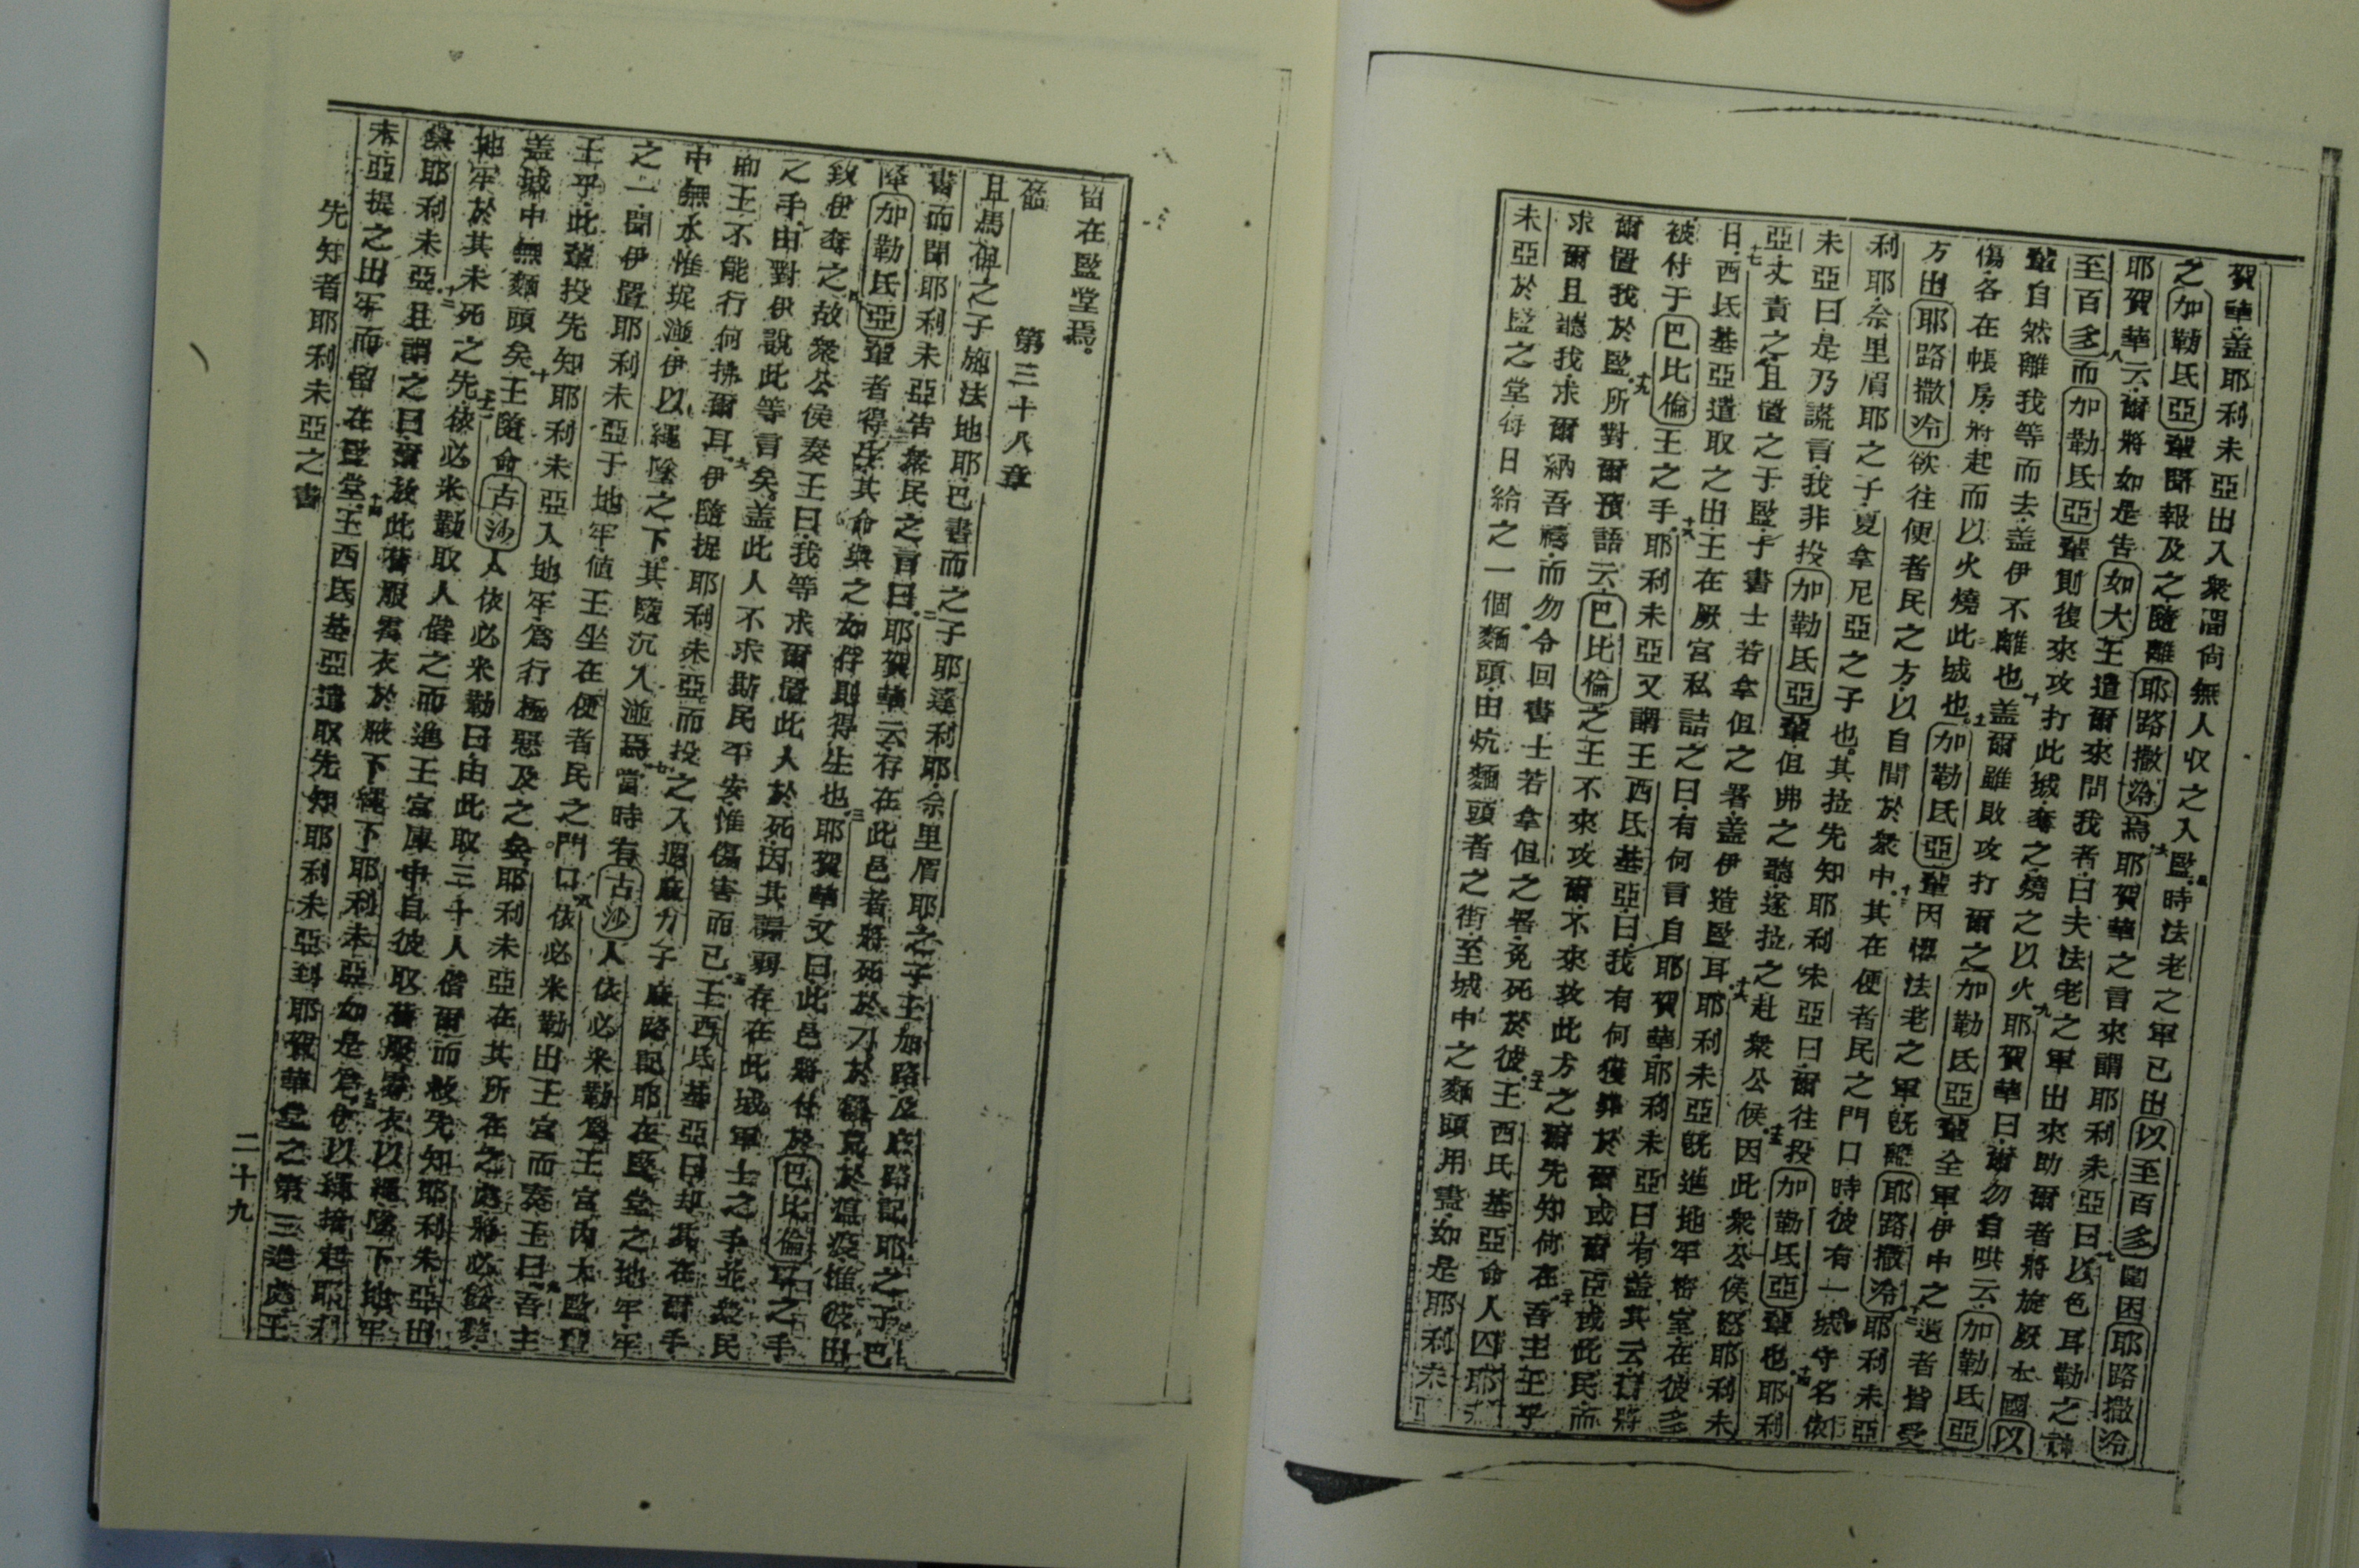 賀華蓋耶利未亞出入衆間尙無人収之入監五時法老之軍已出以至百多圍困耶路撒冷
之加勒氏亞輩聞報及之隨離耶路撒冷焉六耶賀華之言來謂耶利未亞曰七以色耳勒之神
耶賀華云爾將如是告如大王遣爾來問我者曰夫法老之軍出來助爾者將旋厥本國以
至百多八而加勒氏亞輩則復來攻打此城奪之燒之以火九耶賀華曰爾勿自哄云加勒氏亞
輩自然離我等而去蓋伊不離也十蓋爾雖敗攻打爾之加勒氏亞輩全軍伊中之遺者皆受
傷各在帳房將起而以火燒此城也十一加勒氏亞輩因懼法老之軍旣離耶路撒冷十二耶利未亞
方出耶路撒冷欲往便者民之方以自間於衆中十三其在便者民之門口時彼有一城守名依
利耶佘里眉耶之子夏拿尼亞之子也其拉先知耶利未亞曰爾往投加勒氏亞輩也十四耶利
未亞曰是乃謊言我非投加勒氏亞輩但弗之聽遂拉之赴衆公侯十五因此衆公侯怒耶利未
亞丈責之且置之于監于書士若拿但之署蓋伊造監耳十六耶利未亞旣進地牢密室在彼多
日十七西氏基亞遣取之出王在厥宮私詰之曰有何言自耶賀華耶利未亞曰有蓋其云爾將
被付于巴比倫王之手十八耶利未亞又謂王西氏基亞曰我有何獲罪於爾或爾臣或此民而
爾置我於監十九所對爾預語云巴比倫之王不來攻爾不來攻此方之爾先知何在二十吾主王乎
求爾且聽我求爾納吾禱而勿令回書士若拿但之署免死於彼二十一王西氏基亞命人囚耶利
未亞於監之堂每日給之一個麵頭由炕麵頭者之街至城中之麵頭用盡如是耶利未亞
留在監堂焉
第三十八章
且馬但之子施法地耶巴書而之子耶遂利耶佘里眉耶之子主加路及麻路記耶之子巴
書而聞耶利未亞告衆民之言曰二耶賀華云存在此邑者將死於刀於餓荒於瘟疫惟彼出
降加勒氏亞輩者得活其命與之如俘則得生也三耶賀華又曰此邑將付於巴比倫軍之手
致伊奪之四故衆公侯奏王曰我等求爾置此人於死因其謂弱存在此城軍士之手並衆民
之手由對伊說此等言矣蓋此人不求斯民平安惟傷害而已五王西氏基亞曰却其在爾手
卽王不能行何拂爾耳六伊隨捉耶利未亞而投之入遏麻介子麻路記耶在監堂之地牢牢
中無水惟坭湴伊以繩墜之下其隨沉入湴焉七當時有古沙人依必米勒爲王宮內大監
之一聞伊置耶利未亞于地牢値王坐在便者民之門口八依必米勒出王宮而奏王曰九吾主
王乎此輩投先知耶利未亞入地牢爲行極惡及之矣耶利未亞在其所在之處將必餓斃
蓋城中無麵頭矣十王隨命古沙人依必米勒曰由此取三十人偕爾而救先知耶利未亞出
地牢於其未死之先十一依必米勒取人偕之而進王宮庫中自彼取舊服舊衣以繩墜下地牢
與耶利未亞十二且謂之曰爾放此舊服舊衣於腋下繩下耶利未亞如是爲十三伊以繩掊起耶利
未亞提之出牢而留在監堂十四王西氏基亞遣取先知耶利未亞到耶賀華堂之第三進處王
先知者耶利未亞之書
二十九